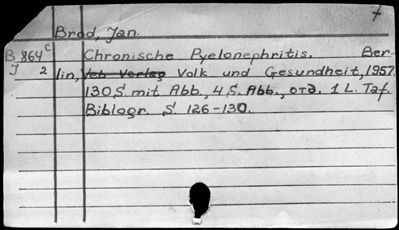 7
Brod, Jan.
B 864c Chronische Pyelonephritis. Ber-
J 2 lin, Veb Verlag Volk und Gesundheit, 1957.
130 S. mit Abb., 4 S. Abb., отд. 1 L. Taf.
Bibliogr. S. 126-130.